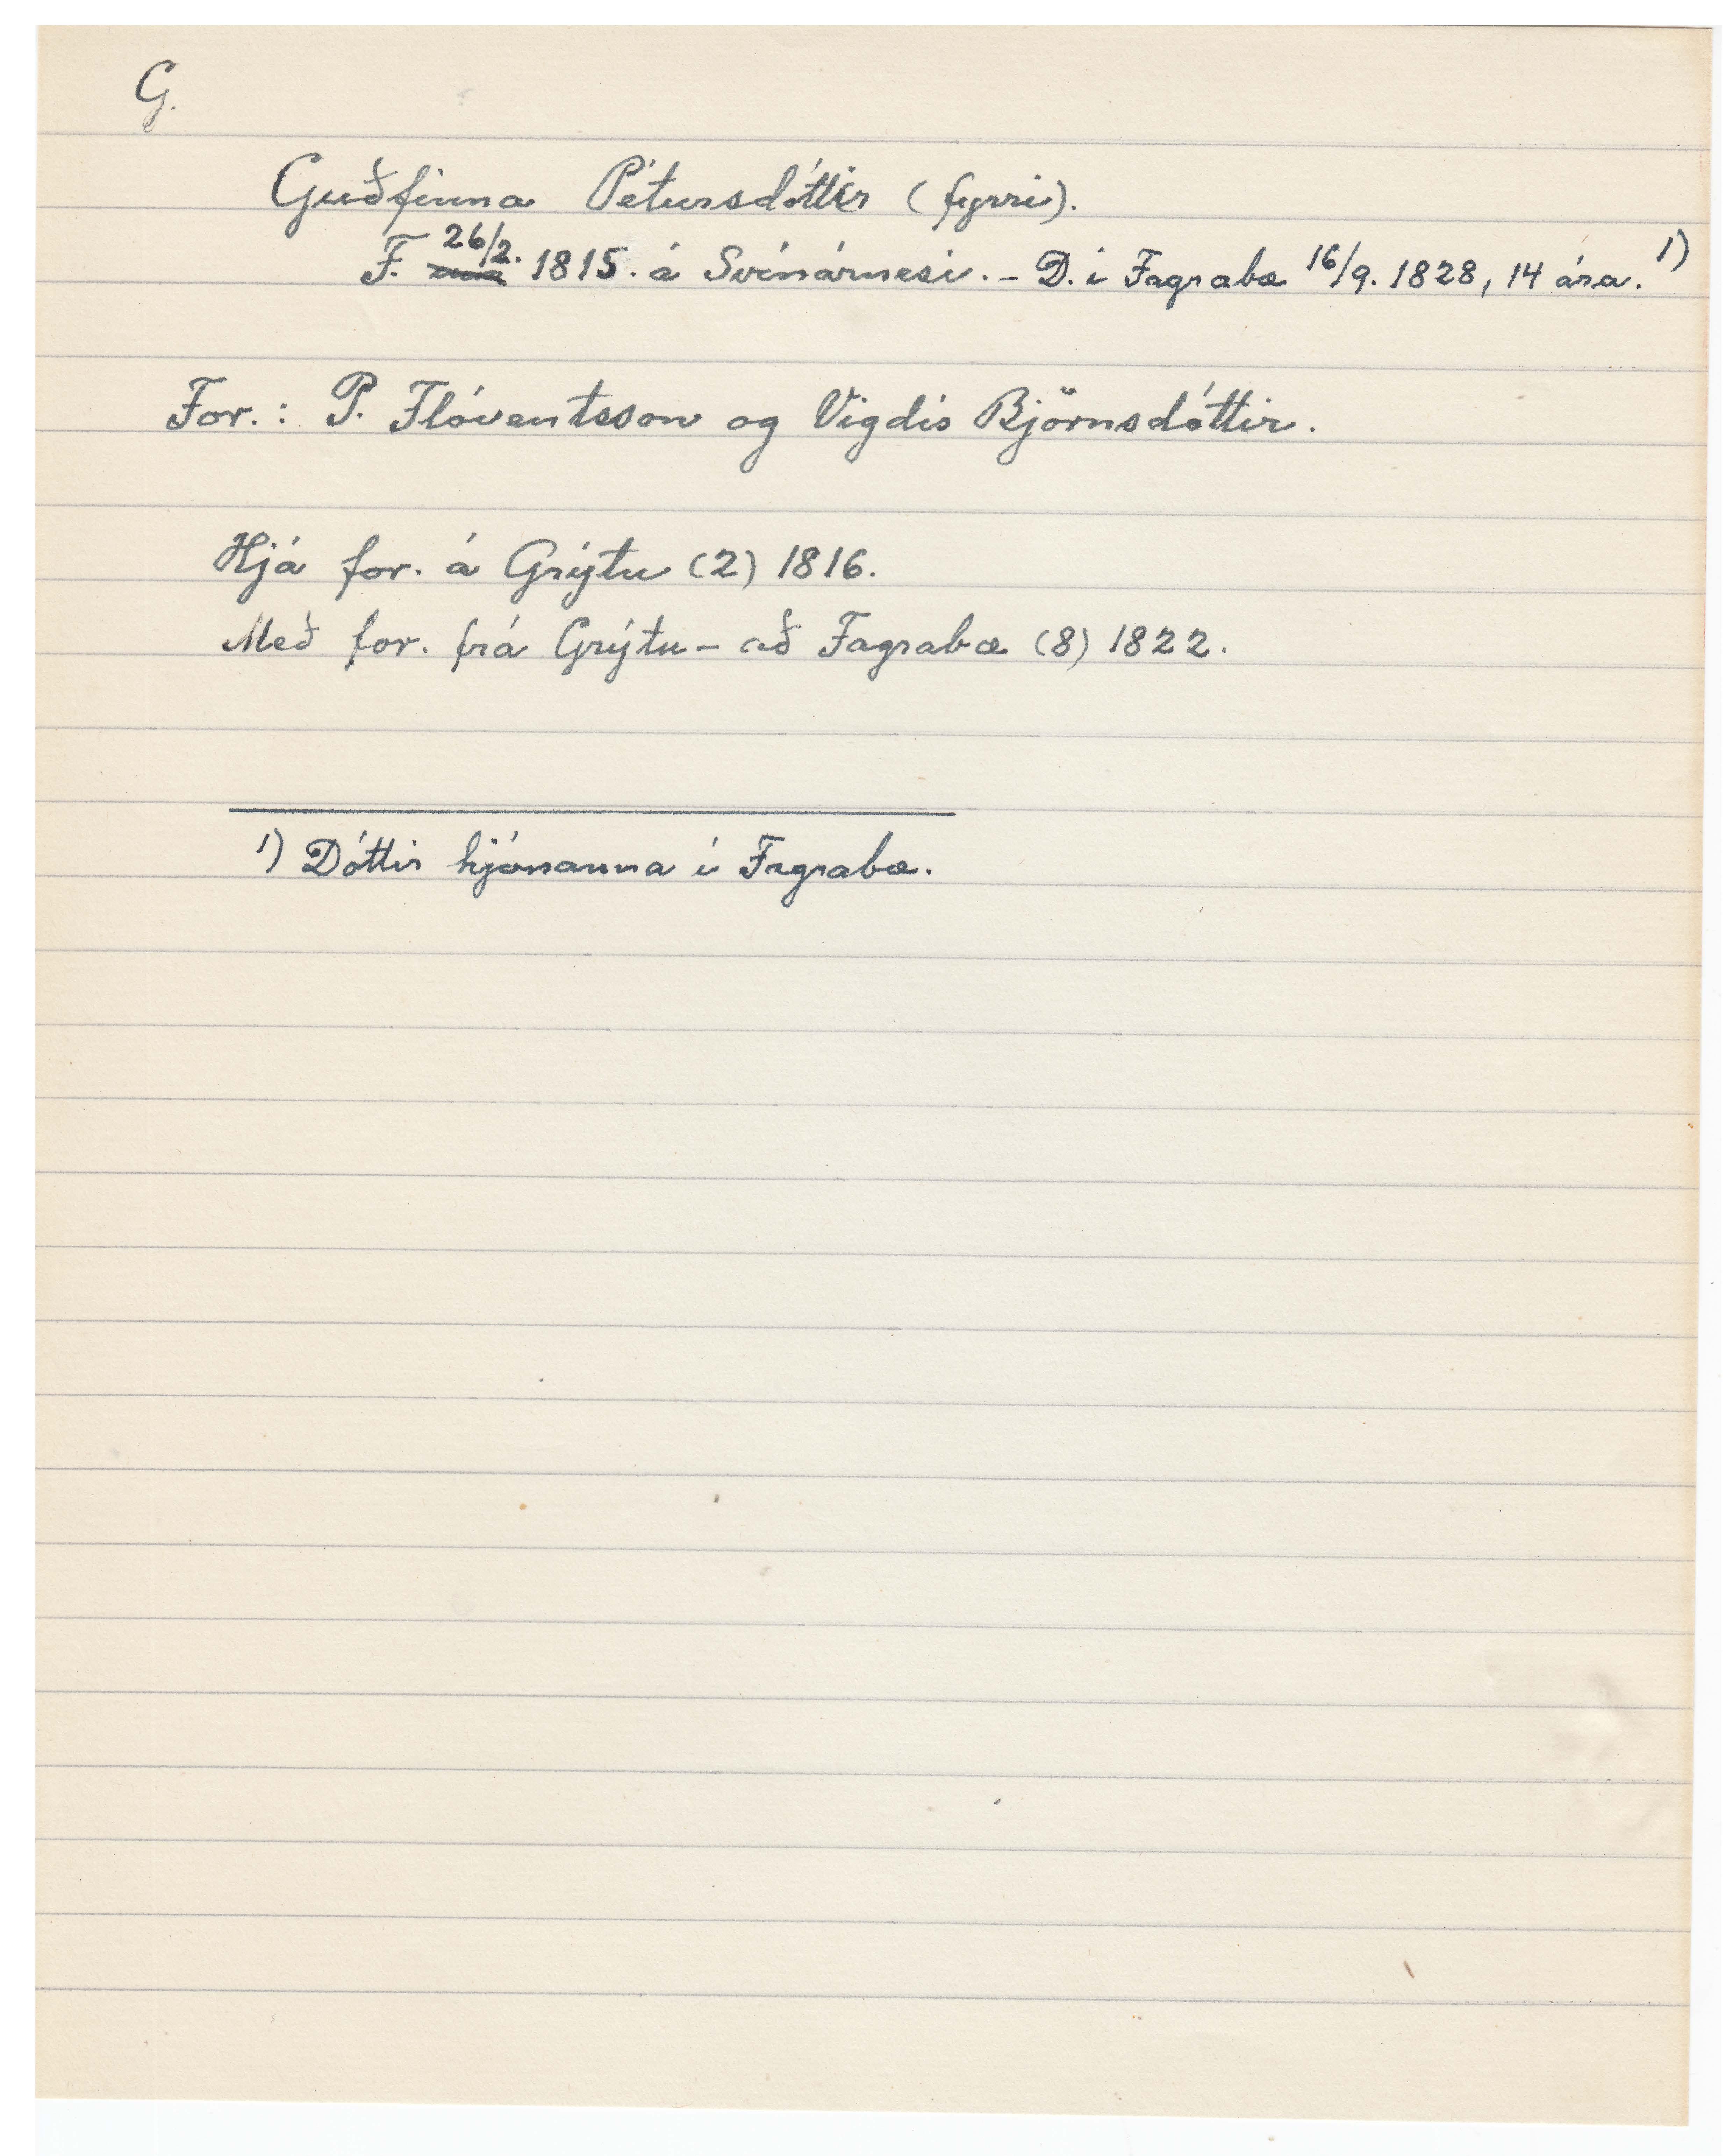 G.
Guðfinna Pétursdóttir (fyrri).
F. 26/2. 1815. á Svínárnesi. - D. í Fagrabæ 16/9. 1828, 14 ára. 1)
For.: P. Flóventsson og Vigdís Björnsdóttir.
Hjá for. á Grýtu (2) 1816.
Með for. frá Grýtu - að Fagrabæ (8) 1822.
1) Dóttir hjónanna í Fagrabæ.